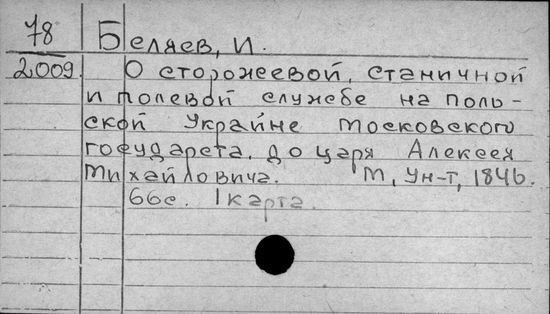 78 Беляев, И.
2009 О сторожевой, станичной
и полевой службе на поль-
ской Украйне Московского
государства, до царя Алексея
Михайловича. М, Ун-т, 1846.
66с. 1 карта.